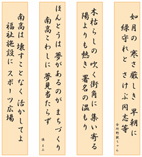 如月の寒さ厳しき早朝に
緑守れとさけぶ同志等
木枯らしの吹く街角に集い寄る
陽よりも熱き署名の温もり
ほんとうは夢があるのがまちづくり
南高こわしに夢見当たらず
南高は壊すことなく活かしてよ
福祉施設にスポーツ広場